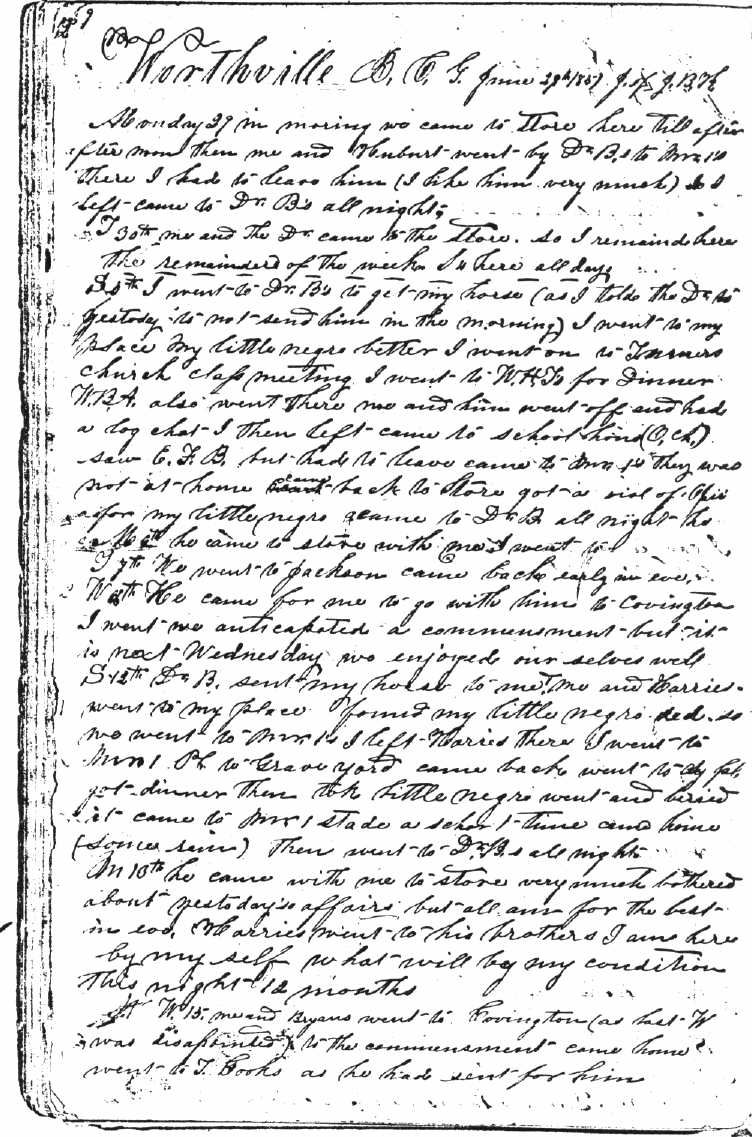 Worthville B. C. G. June 29th 1857 J. of J. B. H.
Monday 29 in moring we came to store here till after
after moon then me and Huburt went by Dr B,s to Mrs 1s
there I had to leave him (I like him very much) so I
left came to Dr. B's all night,
T 30th me and the Dr. came to the store. so I remaind here
the remainderd of the week S 4 here all day,
S 5th I went to Dr. B's to get my horse (as I tolde the Dr to
yestoday to not send him in the morning) I went to my
place my little negro better I went on to Turners
church class meeting I went to W. H. Ts for Dinner
W. B. A. also went there me and him went off and had
a log chat I then left came to school hous (O. Ch.)
saw E. F. B. but had to leave came to Mrs 1s they was
not at home came back to store got a vial of
for my little negro came to Dr B. all night he
M 6th he came to store with me I went to
T 7th We went to Jackson came back early in eve,
W 8th He came for me to go with him to Covington
I went we anticapated a commensment but it
is next Wednesday we enjoyed our selves well
S 12th Dr B. sent my horse to me, me and Harries
went to my place found my little negro ded. so
we went to Mrs 1s I left Harries there I went to
Mrs 1 Pl. to Grave yard came back went to
got dinner then tok little negro went and beried
it came to Mrs 1 stade a short time came home
(some rain) then went to Dr. B,s all night
M 13th he came with me to store very much bothered
about yestoday's affairs but all am for the best
in eve, Harries went to his brothers I am here
by my self what will be my condition
this night 12 months
W. 15. me and Byars went to Covington (as last W
was disapointed) to the commensment came home
went to T. Cooks as he had sent for him